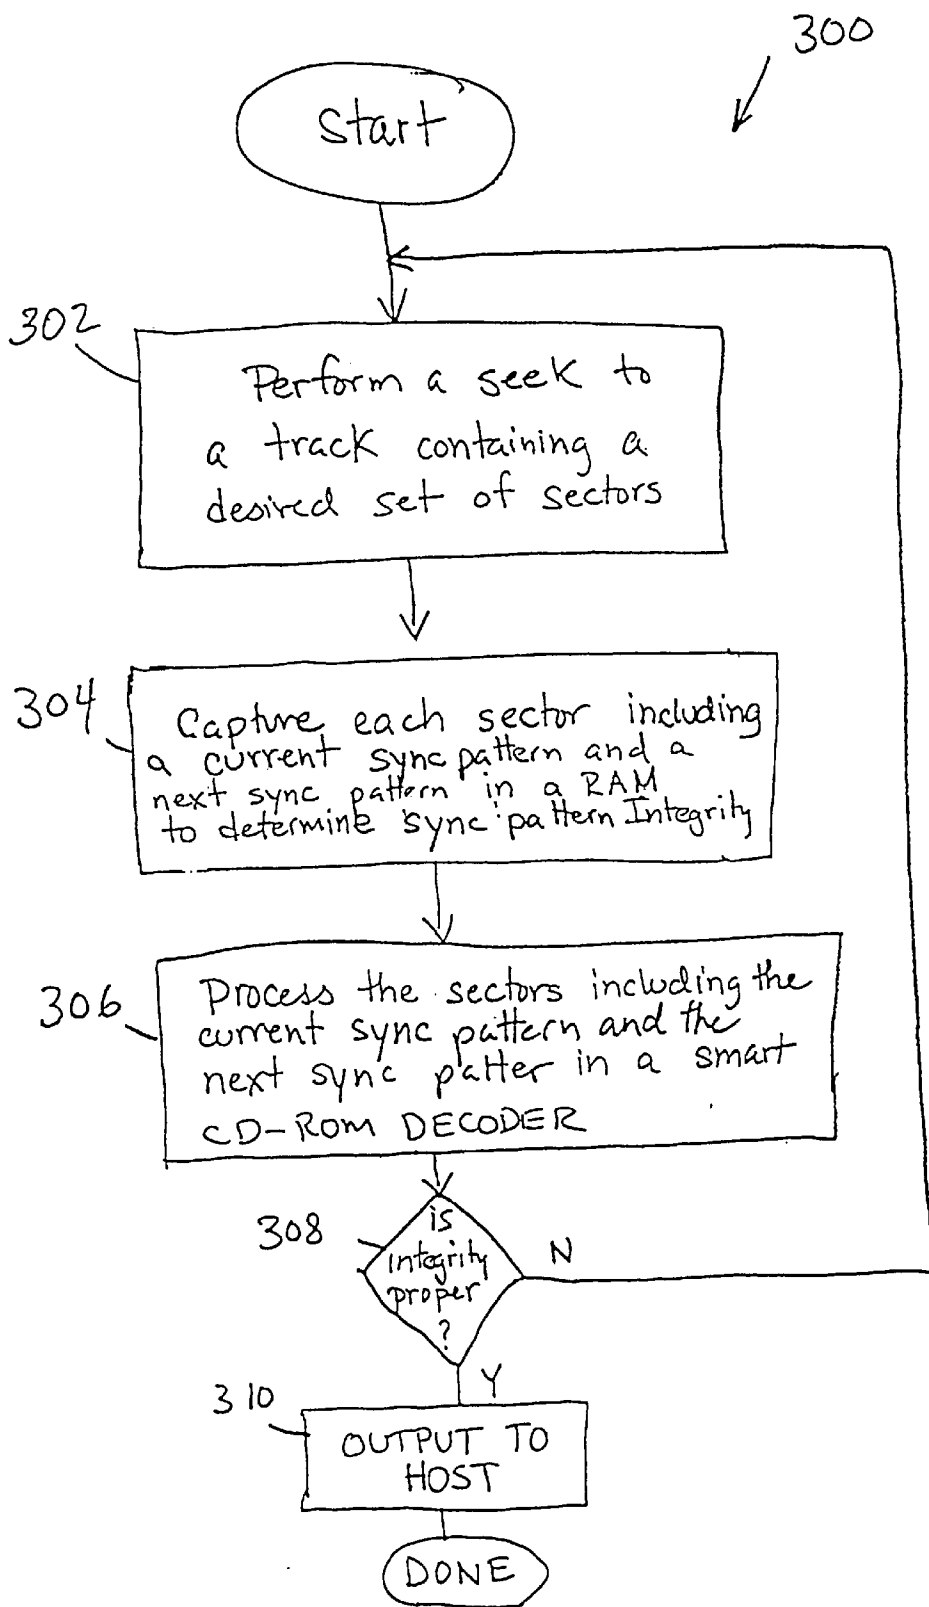 300
Start
302
Perform a seek to
a track containing a
desired set of sectors
304
Capture each sector including
a current sync pattern and a
next sync pattern in a RAM
to determine sync pattern Integrity
306
Process the sectors including the
current sync pattern and the
next sync patter in a smart
CD-ROM DECODER
308
is
Integrity
proper
?
N
Y
310
OUTPUT TO
HOST
DONE